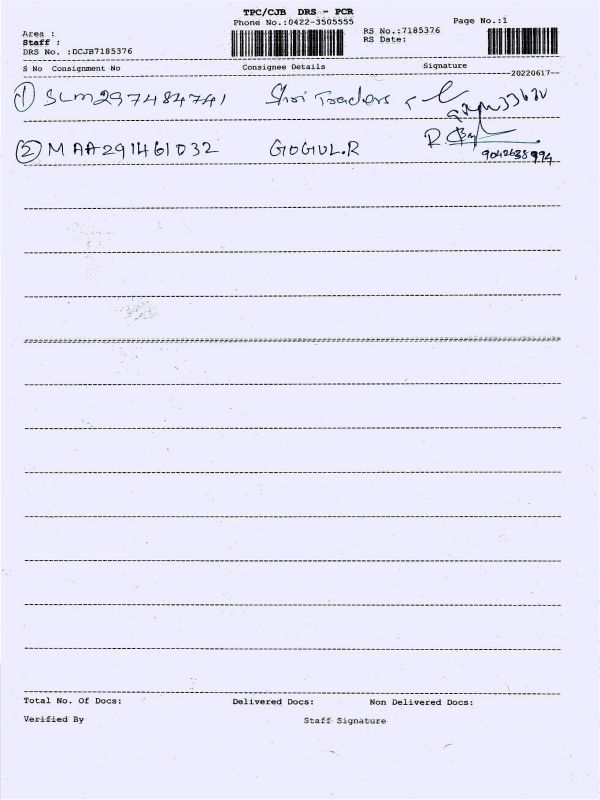 TPC/CJB DRS - PCR
Phone No.:0422-3505555
Page No.:1
Area :
RS No.:7185376
Staff :
RS Date:
DRS No. :DCJB7185376
S No Consignment No Consignee Details Signature
--20220617--
① SLM297484741 Shri Traders
② MAA291461032 GOGUL.R R.
Total No. Of Docs: Delivered Docs: Non Delivered Docs:
Verified By Staff Signature